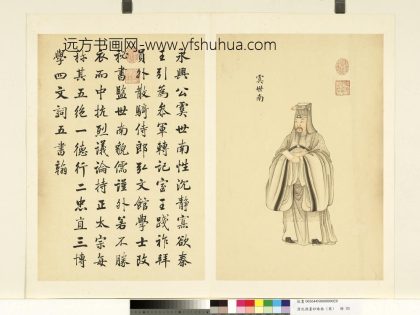 远方书画网- www.yfshuhua.com
虞世南
永興公虞世南性沉靜寡欲秦
王引為參軍轉記室王踐祚拜
員外散騎侍郎弘文館學士改
秘書監世南貌儒謹外若不勝
衣而中抗烈議論持正太宗每
稱其五絕一德行二忠直三博
學四文詞五書翰